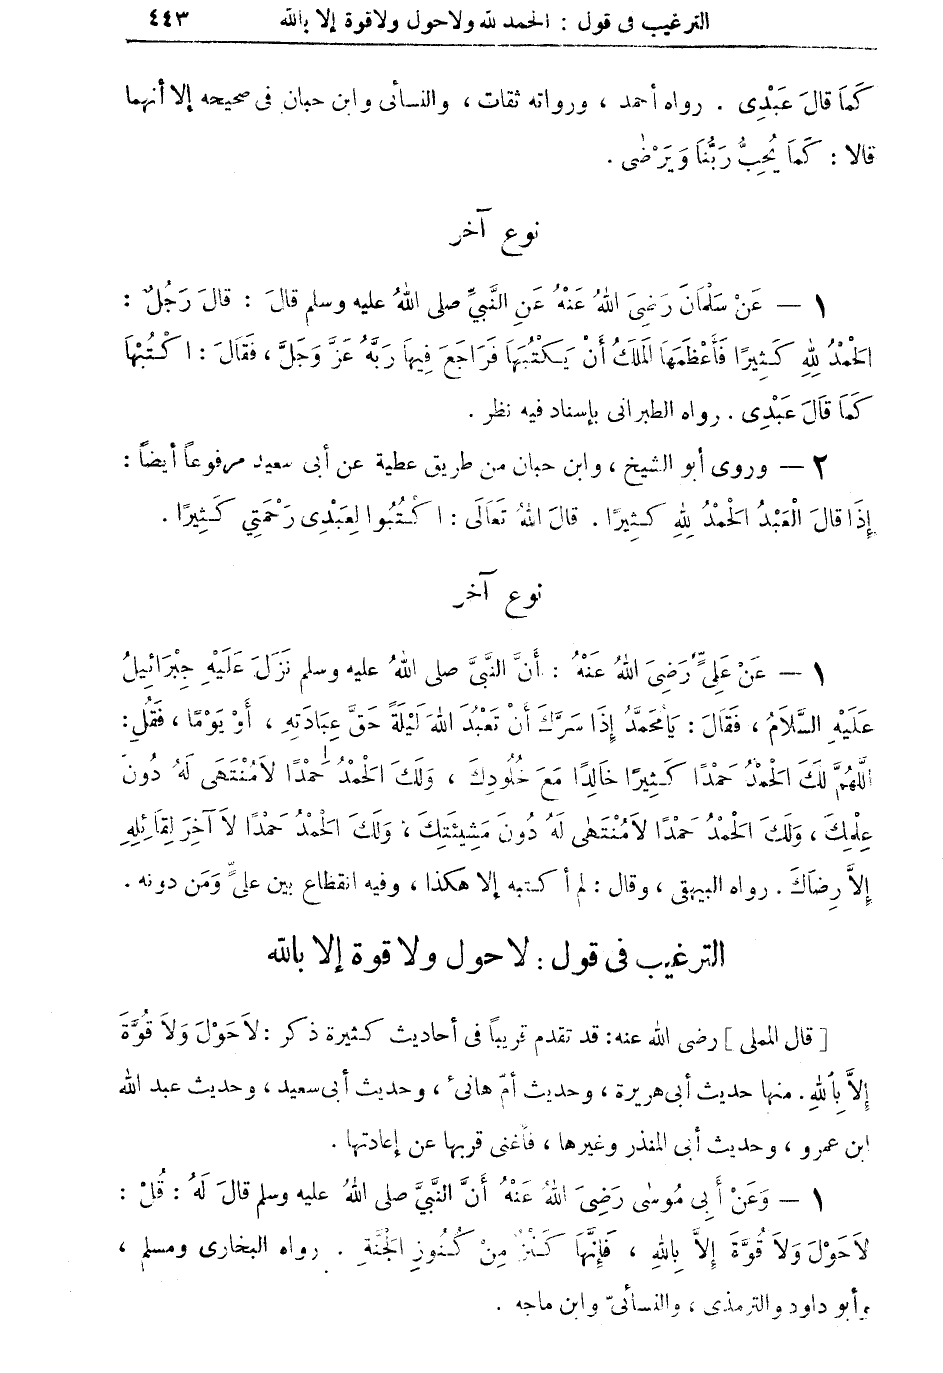 الترغيب فى قول : الحمد لله ولاحول ولاقوة إلا بالله ٤٤٣
كَمَا قَالَ عَبْدِى . رواه أحمد ، ورواته ثقات ، والنسائى وابن حبان فى صحيحه إلا أنهما
قالا : كَمَا يُحِبُّ رَبُّنَا وَيَرْضَى .
نوع آخر
١ — عَنْ سَلْمَانَ رَضِىَ اللهُ عَنْهُ عَنِ النَّبِيِّ صلى اللهُ عليه وسلم قَالَ : قَالَ رَجُلٌ :
الْحَمْدُ لِلهِ كَثِيرًا فَأَعْظَمَهَا الْمَلَكُ أَنْ يَكْتُبَهَا فَرَاجَعَ فِيهَا رَبَّهُ عَزَّ وَجَلَّ ، فَقَالَ : اكْتُبْهَا
كَمَا قَالَ عَبْدِى . رواه الطبرانى بإسناد فيه نظر .
٢ — وروى أبو الشيخ ، وابن حبان من طريق عطية عن أبى سعيد مرفوعاً أيضاً :
إِذَا قَالَ الْعَبْدُ الْحَمْدُ لِلهِ كَثِيرًا . قَالَ اللهُ تَعَالَى : اكْتُبُوا لِعَبْدِى رَحْمَتِي كَثِيرًا .
نوع آخر
١ — عَنْ عَلِيٍّ رَضِىَ اللهُ عَنْهُ : أَنَّ النَّبِيَّ صلى اللهُ عليه وسلم نَزَلَ عَلَيْهِ جِبْرَائِيلُ
عَلَيْهِ السَّلاَمُ ، فَقَالَ : يَامُحَمَّدُ إِذَا سَرَّكَ أَنْ تَعْبُدَ اللهَ لَيْلَةً حَقَّ عِبَادَتِهِ ، أَوْ يَوْمًا ، فَقُلِ :
اللَّهُمَّ لَكَ الْحَمْدُ حَمْدًا كَثِيرًا خَالِدًا مَعَ خُلُودِكَ ، وَلَكَ الْحَمْدُ حَمْدًا لاَمُنْتَهَى لَهُ دُونَ
عِلْمِكَ ، وَلَكَ الْحَمْدُ حَمْدًا لاَمُنْتَهَى لَهُ دُونَ مَشِيئَتِكَ ، وَلَكَ الْحَمْدُ حَمْدًا لاَ آخِرَ لِقَائِلِهِ
إِلاَّ رِضَاكَ . رواه البيهقى ، وقال : لم أكتبه إلا هكذا ، وفيه انقطاع بين علىٍّ وَمَن دونه .
الترغيب فى قول : لاحول ولا قوة إلا بالله
[ قال المملى ] رضى الله عنه : قد تقدم قريباً فى أحاديث كثيرة ذكر : لاَحَوْلَ وَلاَ قُوَّةَ
إِلاَّ بِاللهِ . منها حديث أبى هريرة ، وحديث أمّ هانئ ، وحديث أبى سعيد ، وحديث عبد الله
ابن عمرو ، وحديث أبى المنذر وغيرها ، فأغنى قربها عن إعادتها .
١ — وَعَنْ أَبِى مُوسَى رَضِىَ اللهُ عَنْهُ أَنَّ النَّبِيَّ صلى اللهُ عليه وسلم قَالَ لَهُ : قُلْ :
لاَحَوْلَ وَلاَ قُوَّةَ إِلاَّ بِاللهِ ، فَإِنَّهَا كَنْزٌ مِنْ كُنُوزِ الْجَنَّةِ . رواه البخارى ومسلم ،
وأبو داود والترمذى ، والنسائىّ وابن ماجه .